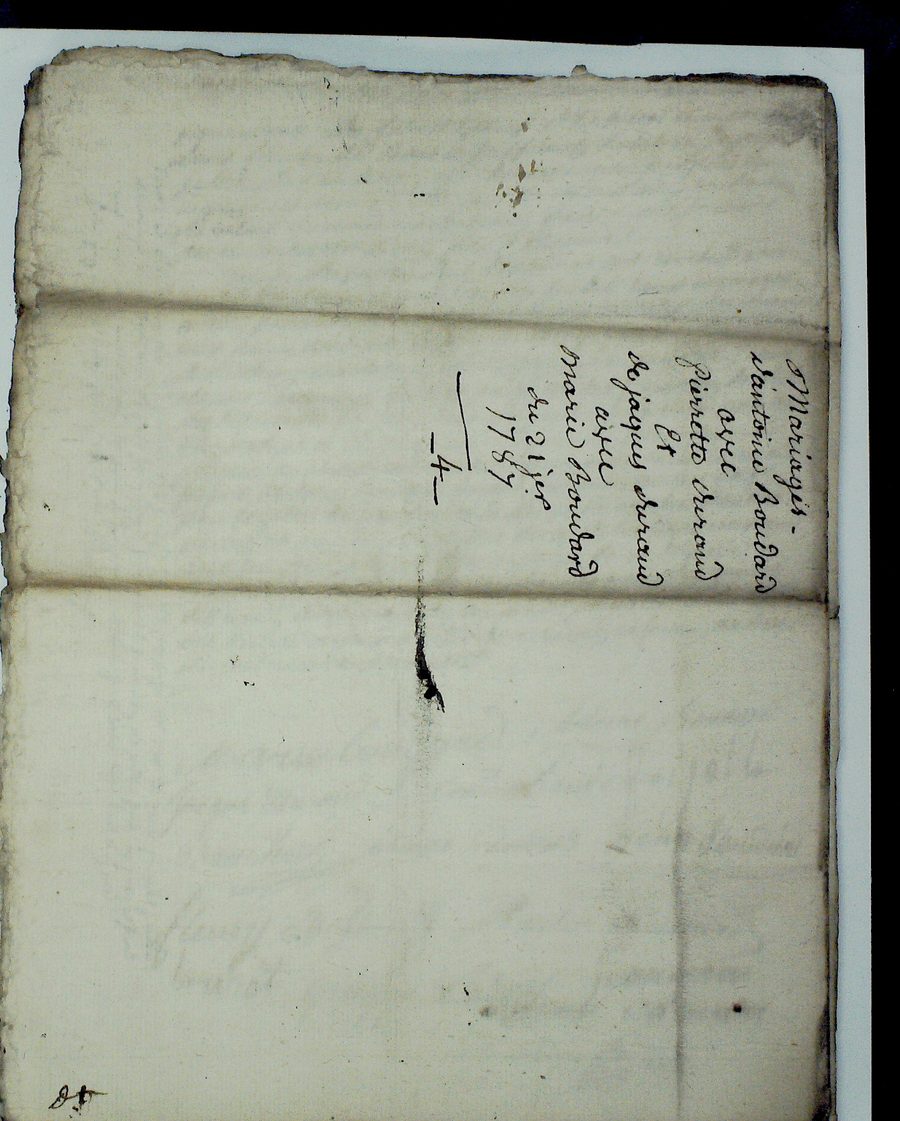 Mariages -
d'antoine Boudard
avec
pierrette durand
Et
de jaques durand
avec
marie Boudard
du 21 jer
1787
- 4 -